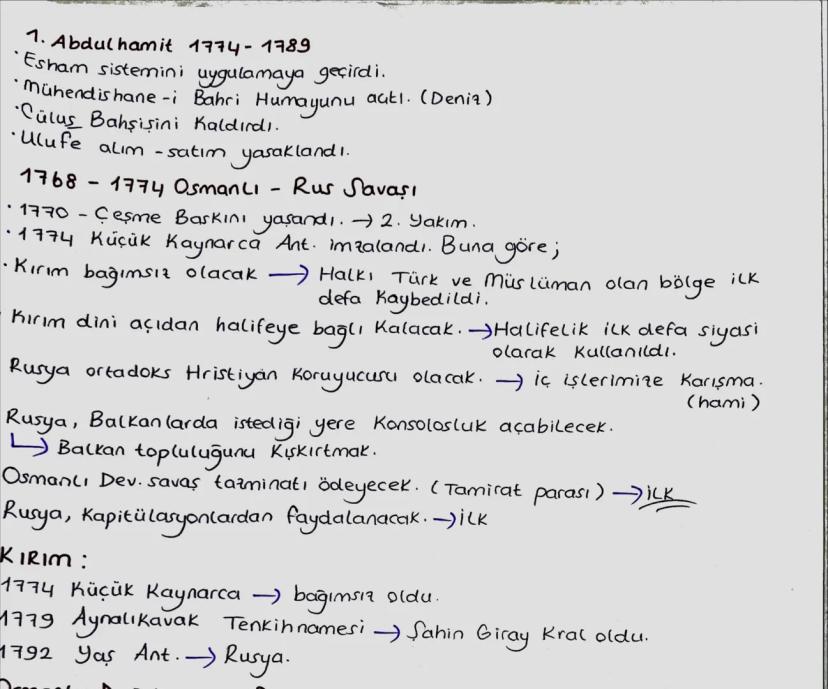 1. Abdulhamit 1774 - 1789
· Esham sistemini uygulamaya geçirdi.
· Mühendishane-i Bahri Humayunu açtı. (Deniz)
· Cülus Bahşişini Kaldırdı.
· Ulufe alım - satım yasaklandı.
1768 - 1774 Osmanlı - Rus Savaşı
· 1770 - Çeşme Baskını yaşandı. → 2. Yakım.
· 1774 Küçük Kaynarca Ant. imzalandı. Buna göre;
· Kırım bağımsız olacak → Halkı Türk ve Müslüman olan bölge ilk
defa Kaybedildi.
Kırım dini açıdan halifeye bağlı Kalacak. → Halifelik ilk defa siyasi
olarak Kullanıldı.
Rusya ortadoks Hristiyan Koruyucusu olacak. → iç işlerimize Karışma.
(hami)
Rusya, Balkanlarda istediği yere Konsolosluk açabilecek.
↳ Balkan topluluğunu Kışkırtmak.
Osmanlı Dev. savaş tazminatı ödeyecek. (Tamirat parası) → İLK
Rusya, Kapitülasyonlardan faydalanacak. → İLK
KIRIM :
1774 Küçük Kaynarca → bağımsız oldu.
1779 Aynalıkavak Tenkihnamesi → Şahin Giray Kral oldu.
1792 Yaş Ant. → Rusya.